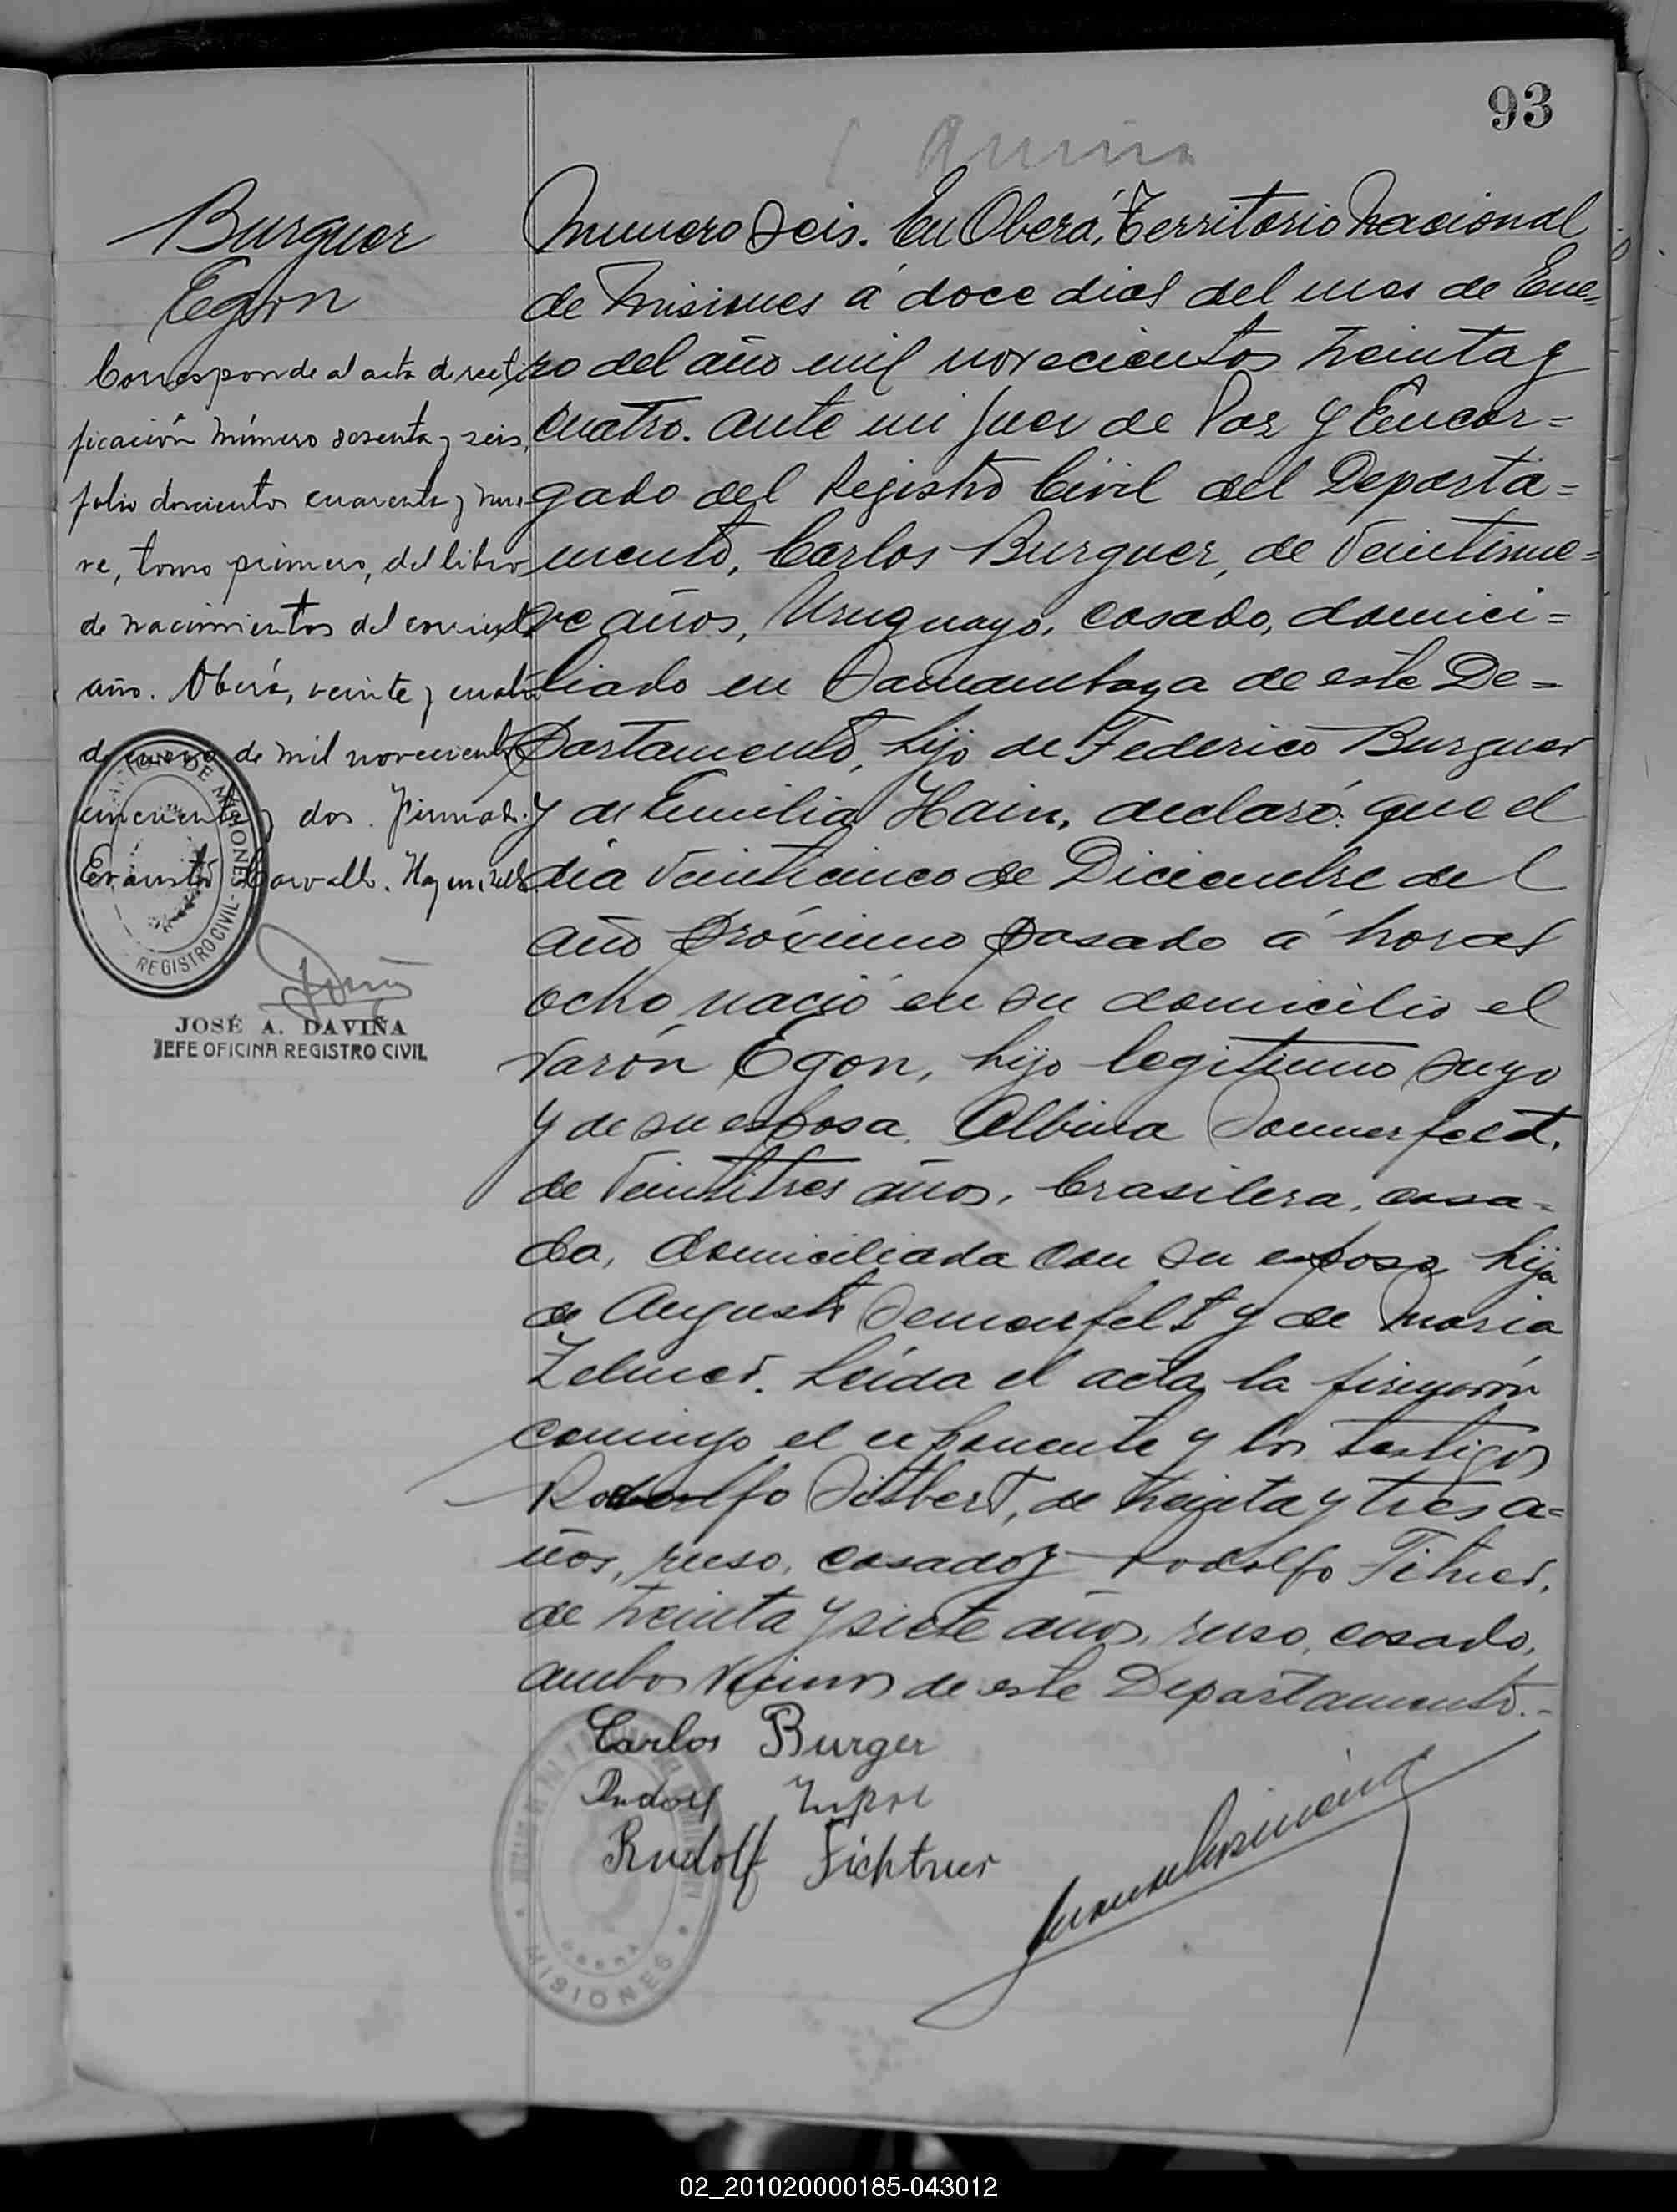 93
Burguer
Egon
Corresponde al acta de recti
ficación número sesenta y seis,
folio doscientos cuarenta y nue
ve, tomo primero, del libro
de nacimientos del corriente
año. Oberá, veinte y cuatro
de enero de mil novecientos
cincuenta y dos. Firmado.
Evaristo Carvallo. Hay un sello
REGISTRO CIVIL
JOSÉ A. DAVIÑA
JEFE OFICINA REGISTRO CIVIL
Número Seis. En Oberá, Territorio Nacional
de Misiones á doce dias del mes de Ene-
ro del año mil novecientos treinta y
cuatro. ante mi Juez de Paz y Encar=
gado del Registro Civil del Departa=
mento, Carlos Burguer, de Veintinue=
ve años, Uruguayo, casado, domici=
liado en de este De=
partamento, hijo de Federico Burguer
y de Emilia Hain, declaró: que el
dia Veinticinco de Diciembre del
año próximo pasado á horas
ocho nació en su domicilio el
Varón Egon, hijo legitimo suyo
y de su esposa Albina Sommerfeldt,
de Veintitres años, brasilera, casa-
da, domiciliada con su esposo, hija
de Augusto y de Maria
Zelmer. Leida el acta, la firmarón
conmigo el exponente y los testigos
Rodolfo de treinta y tres a=
ños, ruso, casado y Rodolfo
de treinta y siete años, ruso, casado,
ambos vecinos de este Departamento.-
Carlos Burger
Rudolf
Rudolf Fichtner
MISIONES
02_201020000185-043012